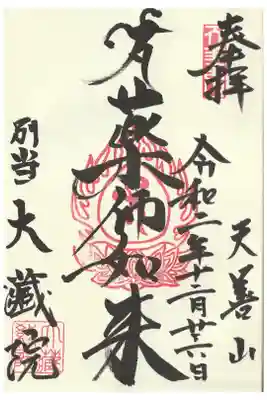 奉拝
天善山
令和二年十二月廿六日
薬師如来
別当 大蔵院